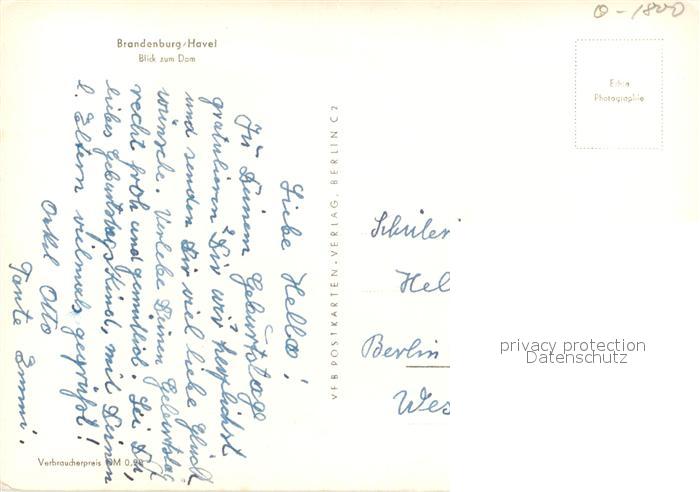 O-1800
Brandenburg/Havel
Blick zum Dom
Echte
Photographie
Liebe Hella!
Zu Deinem Geburtstage
gratulieren Dir wir herzlichst
und senden Dir viel liebe Glück
wünsche. Verlebe Deinen Geburtstag
recht froh und gemütlich. Sei Du,
liebes Geburtstagskind, mit Deinen
l. Eltern vielmals gegrüßt!
Onkel Otto
Tante Emmi.
VFB POSTKARTEN-VERLAG, BERLIN C 2
Schüleri
Hel
Berlin
Wes
privacy protection
Datenschutz
Verbraucherpreis DM 0.20